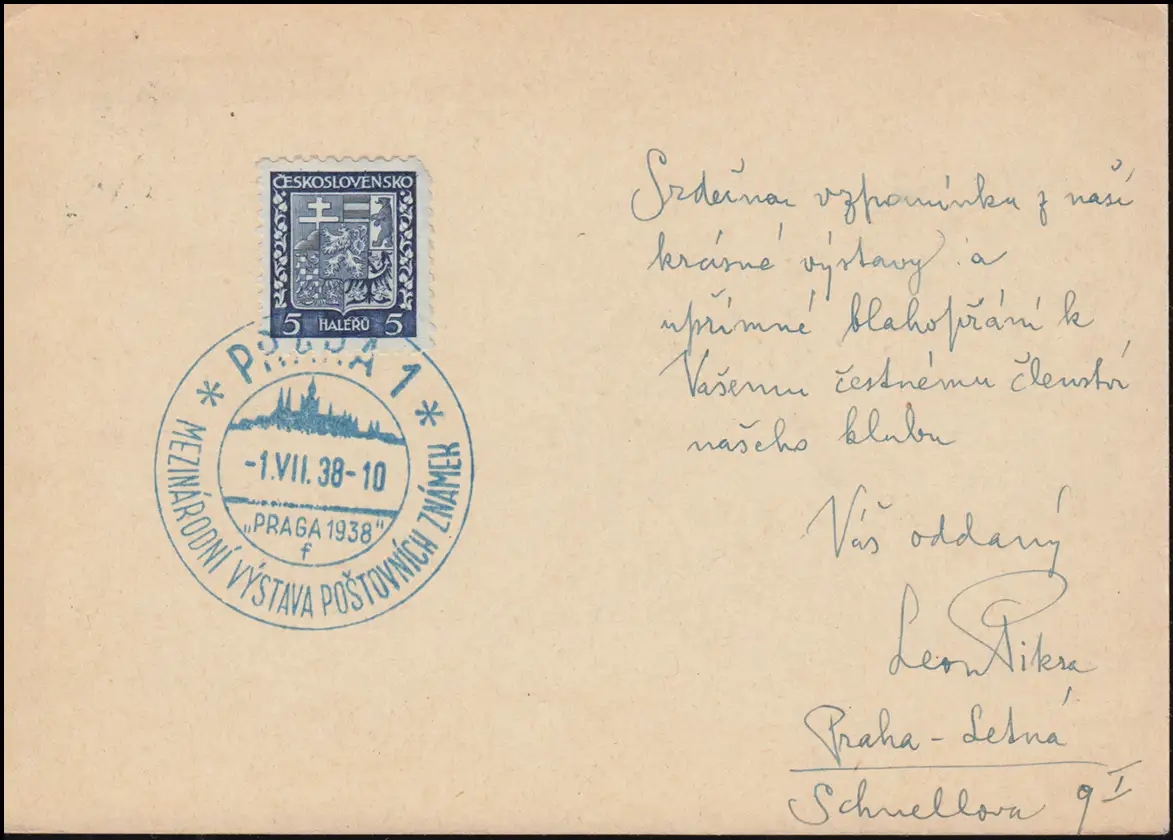 ČESKOSLOVENSKO
5 HALÉŘŮ 5
* PRAHA 1 *
-1.VII.38-10
„PRAGA 1938"
f
MEZINÁRODNÍ VÝSTAVA POŠTOVNÍCH ZNÁMEK
Srdečna vzpomínka z naší
krásné výstavy a
upřímné blahopřání k
Vašemu čestnému členství
našeho klubu
Váš oddaný
Leon Pikra
Praha - Letná
Schnellova 9 I